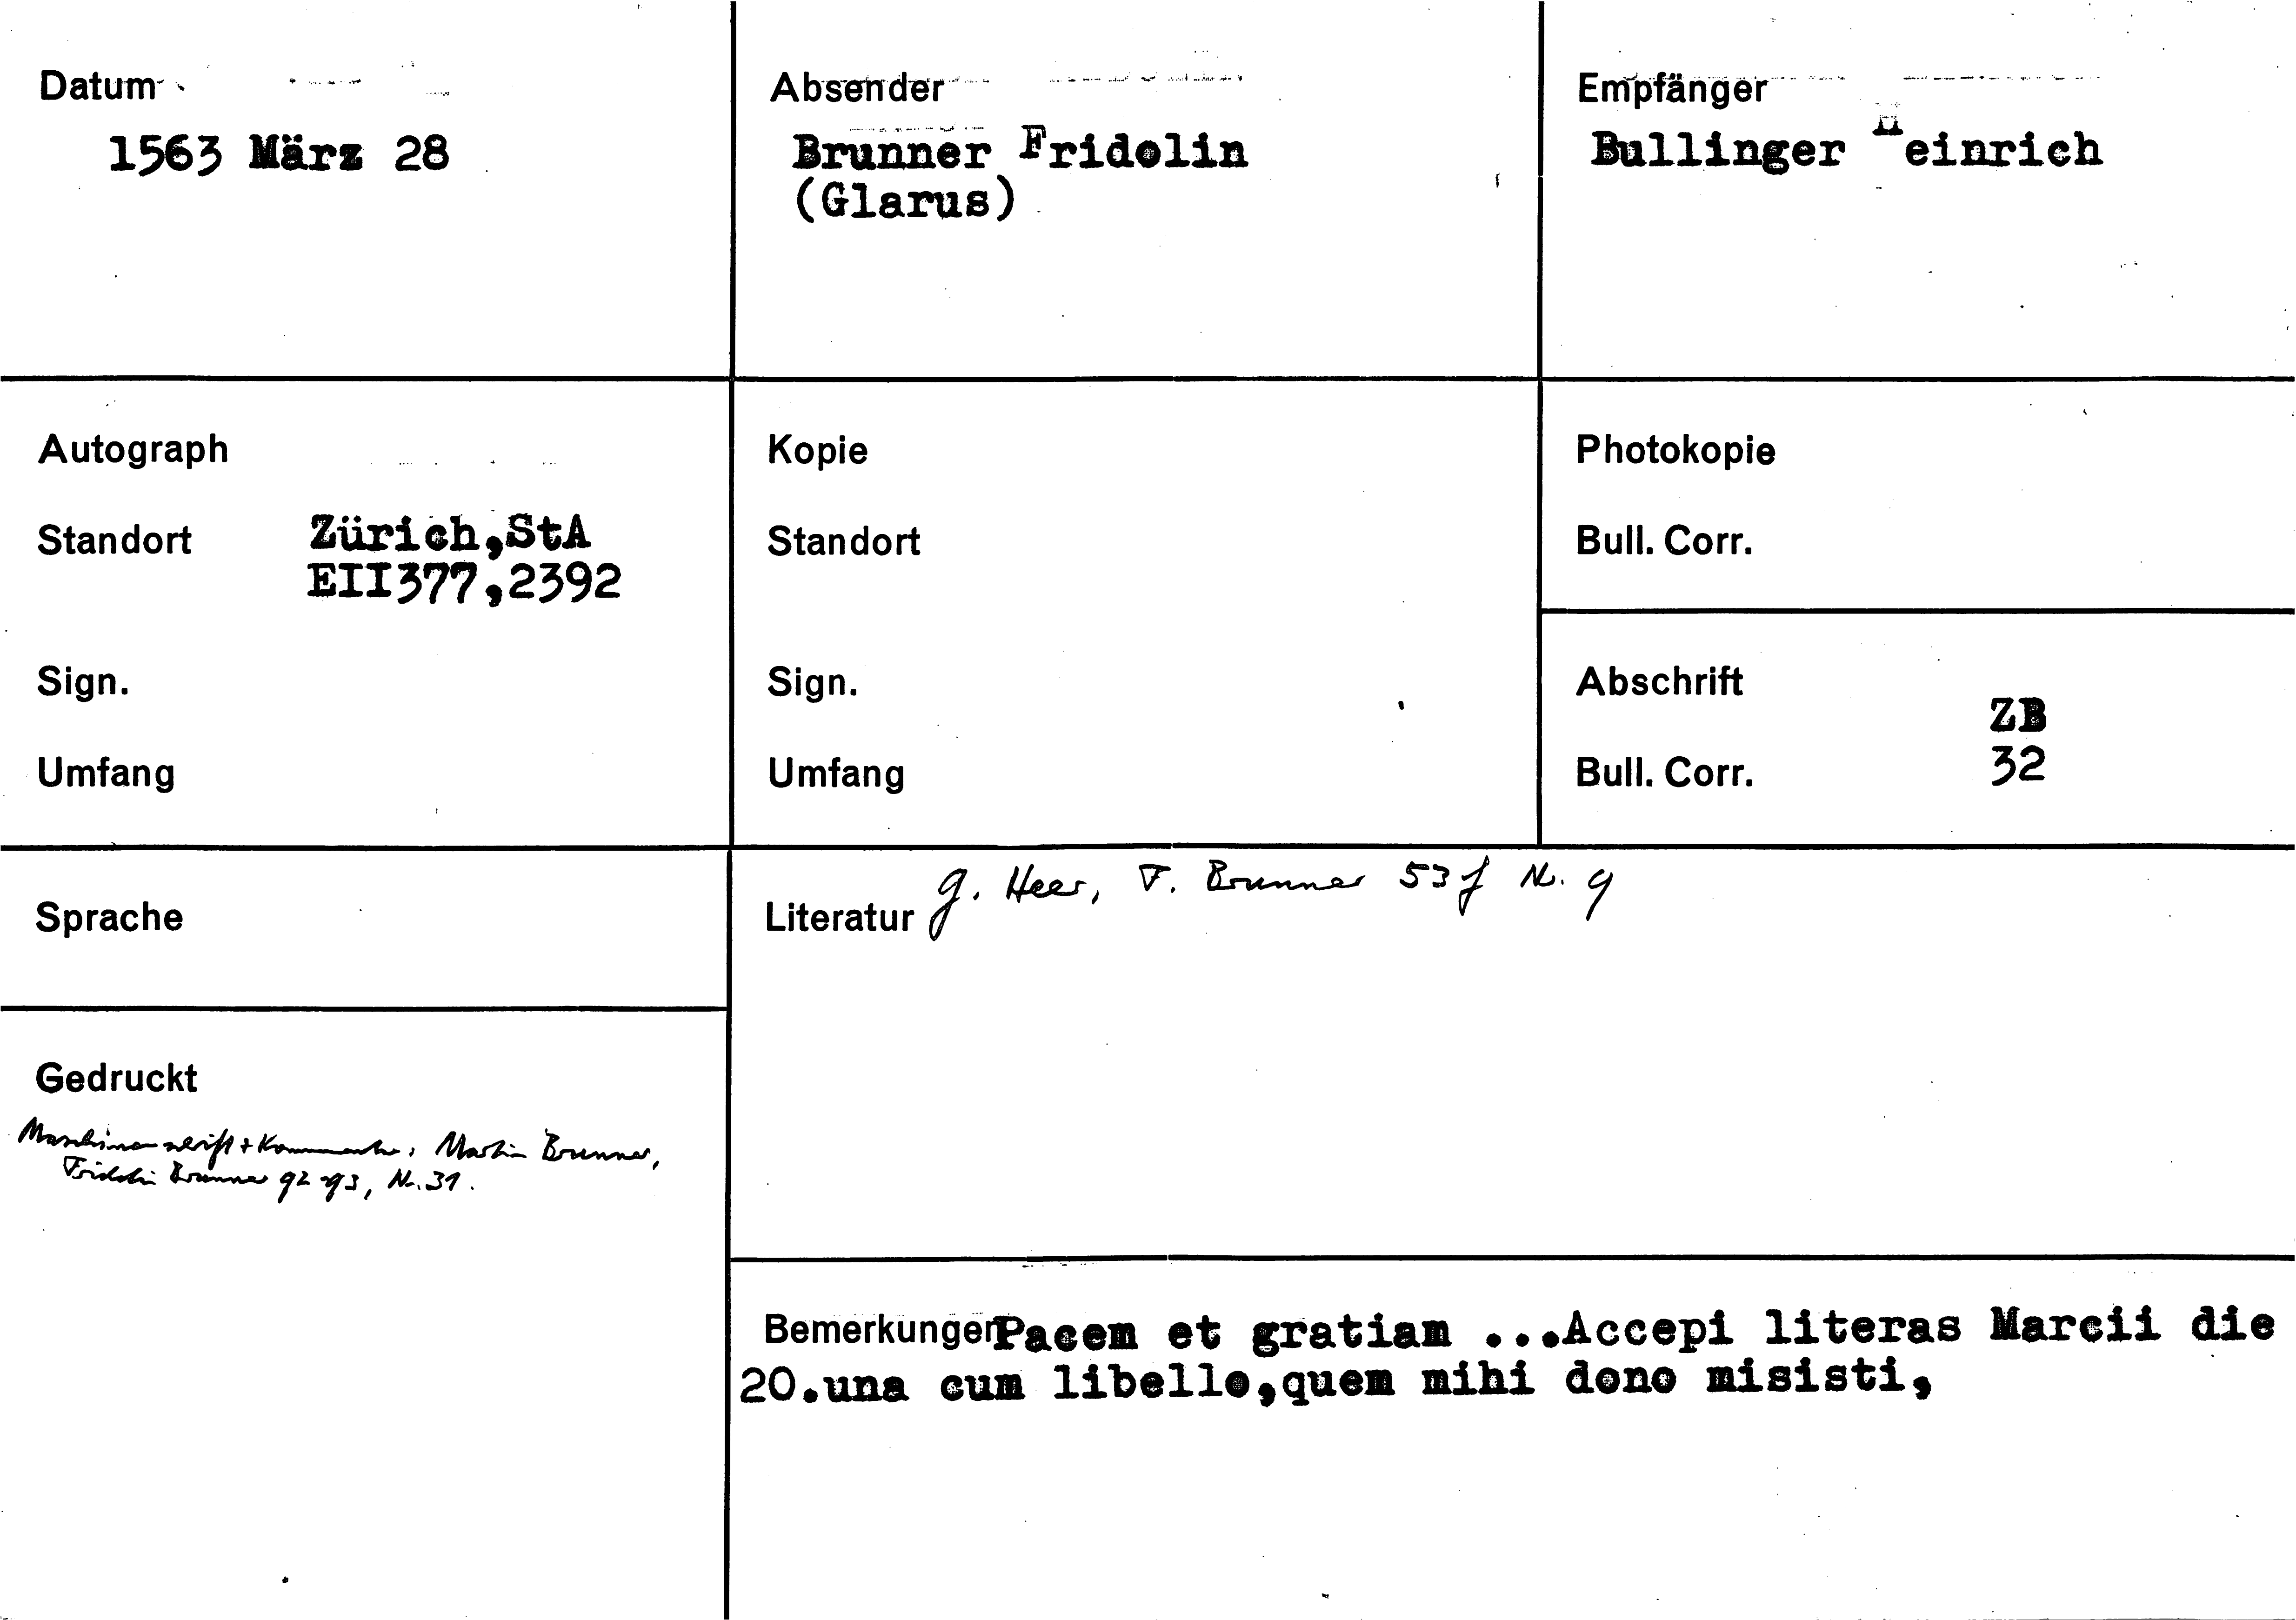 Datum
1563 März 28
Absender
Brunner Fridolin
(Glarus)
Empfänger
Bullinger Heinrich
Autograph
Standort Zürich,StA
EII377,2392
Sign.
Umfang
Kopie
Standort
Sign.
Umfang
Photokopie
Bull. Corr.
Abschrift
ZB
Bull. Corr. 32
Sprache
Literatur G. Heer, F. Brunner 53f Nr. 9
Gedruckt
Maschinenschrift + Kommentar: Martin Brunner,
Fridolin Brunner 92-93, Nr. 31.
Bemerkungen Pacem et gratiam ...Accepi literas Marcii die
20.una cum libello,quem mihi dono misisti,